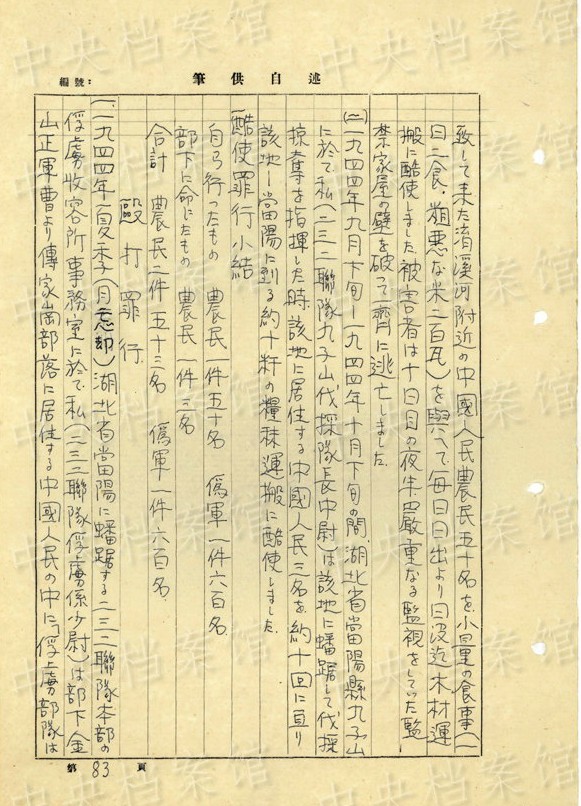 編號：
述自供筆
致して来た淯溪河附近の中國人民農民五十名を小量の食事（一
日二食、粗悪な米二百瓦）を與へて毎日日出より日没迄木材運
搬に酷使しました被害者は十日目の夜半嚴重なる監視をしていた監
禁家屋の壁を破って一齊に逃亡しました.
（二）一九四四年九月下旬—一九四四年十月下旬の間、湖北省當陽縣九子山
に於て私（二三二聯隊九子山伐採隊長中尉）は該地に蟠踞して伐採
掠奪を指揮した時該地に居住する中國人民三名を約十回に亘り
該地—當陽に到る約十粁の糧秣運搬に酷使しました.
酷使罪行小結
自ら行ったもの 農民一件五十名 偽軍一件六百名.
部下に命じたもの 農民一件三名
合計 農民二件五十三名 偽軍一件六百名.
毆打罪行.
（一）一九四四年夏季（月忘却）湖北省當陽に蟠踞する二三二聯隊本部の
俘虜收容所事務室に於て私（二三二聯隊俘虜係少尉）は部下金
山正軍曹より傳家崗部落に居住する中國人民の中に「俘虜部隊は
第83頁
中央档案馆